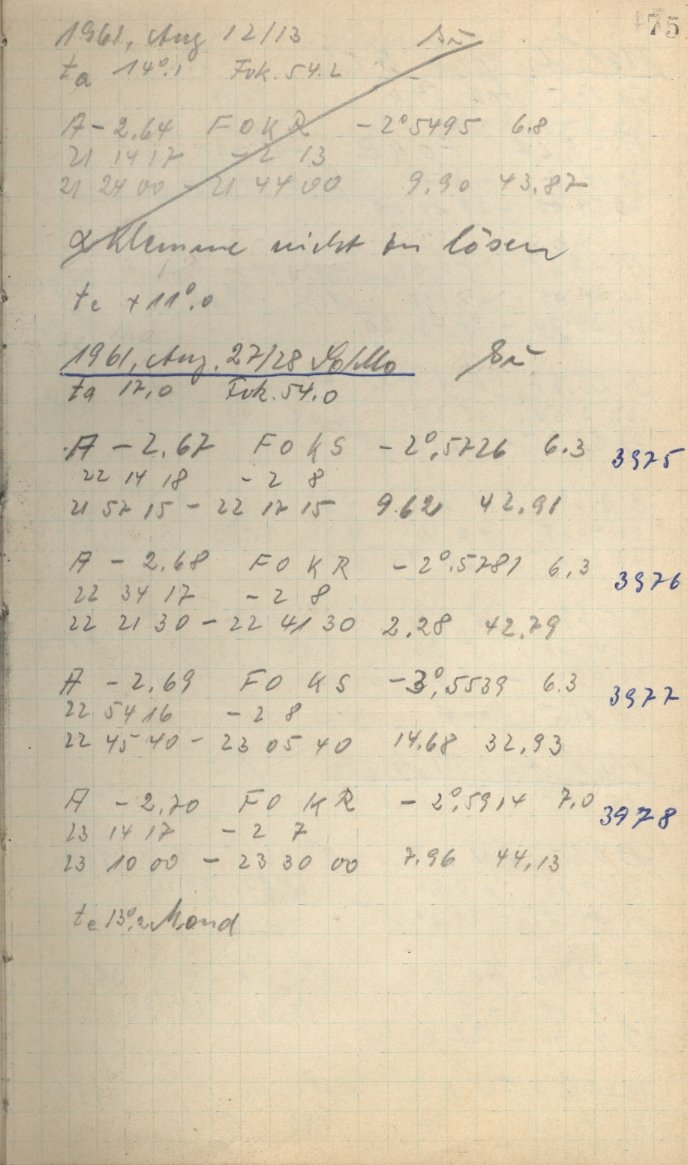 75
1961, Aug 12/13 Sü
ta 14°.1 Fok. 54.2
A - 2.64 FOKR - 2°5495 6.8
21 14 17 - 2 13
21 24 00 - 21 44 00 9.90 43.87
α Klemme nicht zu lösen
te + 11°.0
1961, Aug. 27/28 So/Mo Sü
ta 17.0 Fok. 54.0
A - 2.67 FOKS - 2°.5726 6.3 3975
22 14 18 - 2 8
21 57 15 - 22 17 15 9.62 42.91
A - 2.68 FOKR - 2°.5781 6.3 3976
22 34 17 - 2 8
22 21 30 - 22 41 30 2.28 42.79
A - 2.69 FOKS - 3°.5539 6.3 3977
22 54 16 - 2 8
22 45 40 - 23 05 40 14.68 32.93
A - 2.70 FOKR - 2°.5914 7.0 3978
23 14 17 - 2 7
23 10 00 - 23 30 00 7.96 44.13
te 13°.2 Mond